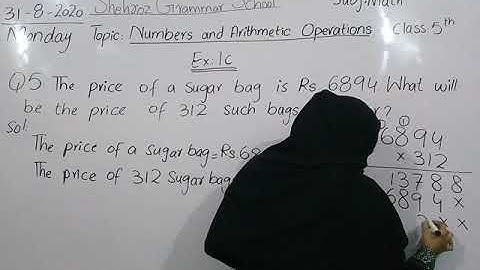 31-8-2020 Shehroz Grammar School Subj:Math
Monday Topic: Numbers and Arithmetic Operations Class: 5th
Ex:1c
Q5 The price of a sugar bag is Rs 6894 What will
be the price of 312 such bags ?
Sol:
The price of a sugar bag=Rs.6
The price of 312 Sugar bag
6894
×312
13788
6894×
××